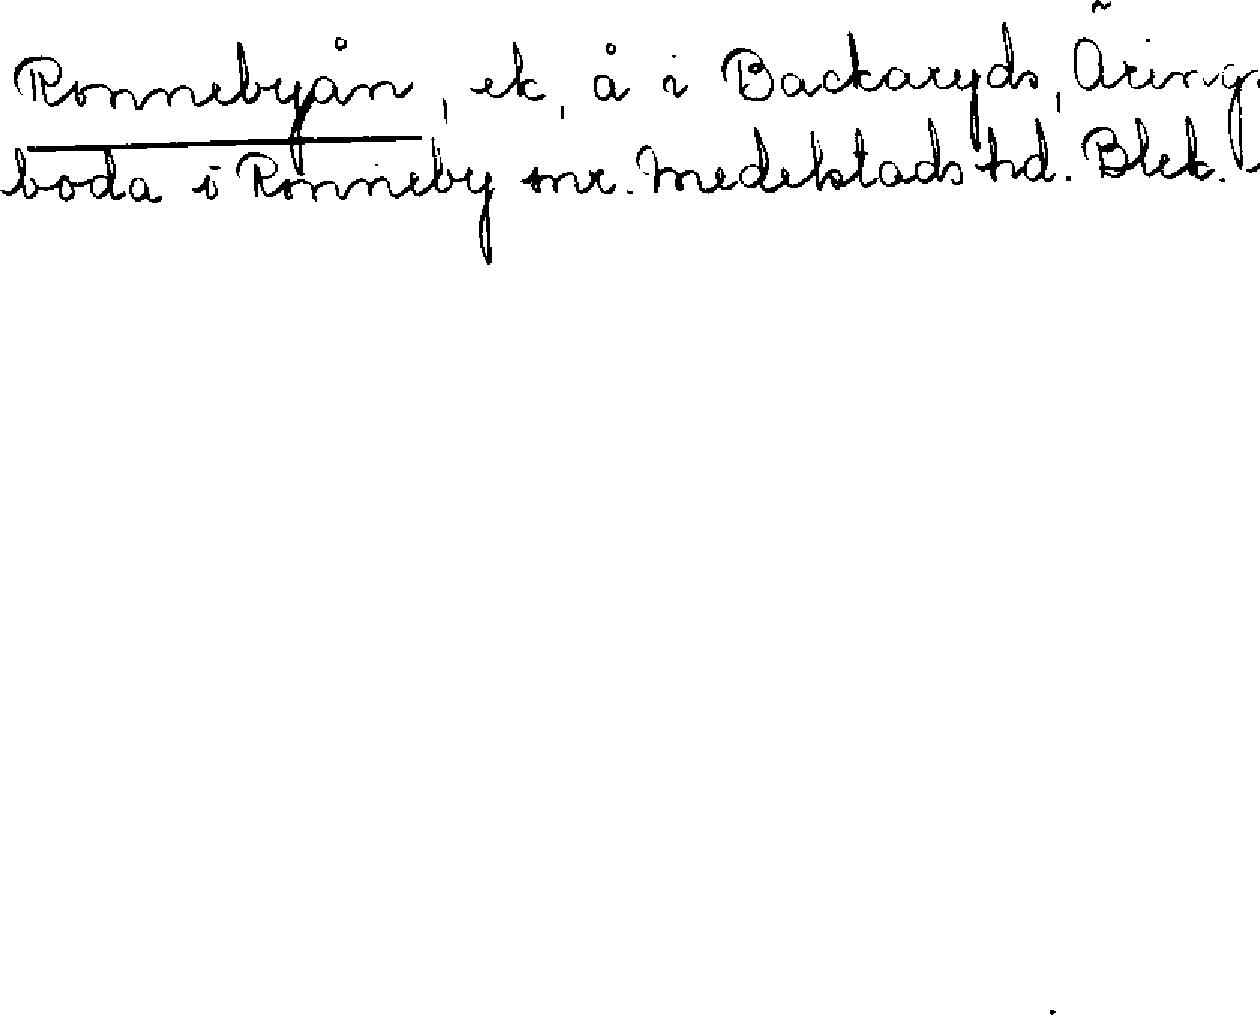 Ronnebyån, ek, å i Backaryds, Örings
boda i Ronneby snr. Medelstads hd. Blek.